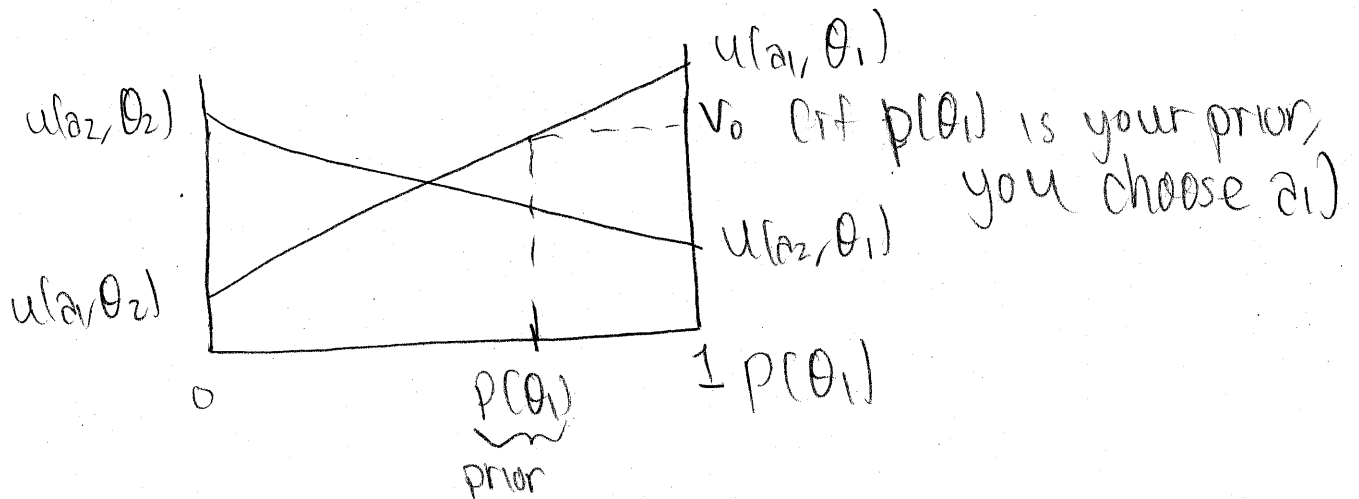 u(a₁, θ₁)
u(a₂, θ₂)
V₀ (if p(θ₁) is your prior,
you choose a₁)
u(a₂, θ₁)
u(a₁, θ₂)
0
p(θ₁)
1 p(θ₁)
prior